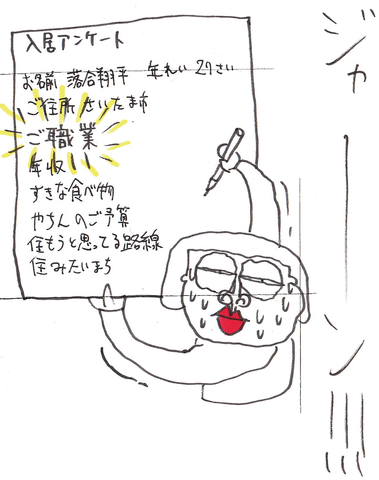 入居アンケート
お名前 落合翔平 年れい 27さい
ご住所 さいたま市
ご職業
年収
すきな食べ物
やちんのご予算
住もうと思ってる路線
住みたいまち
ジャーン!!!